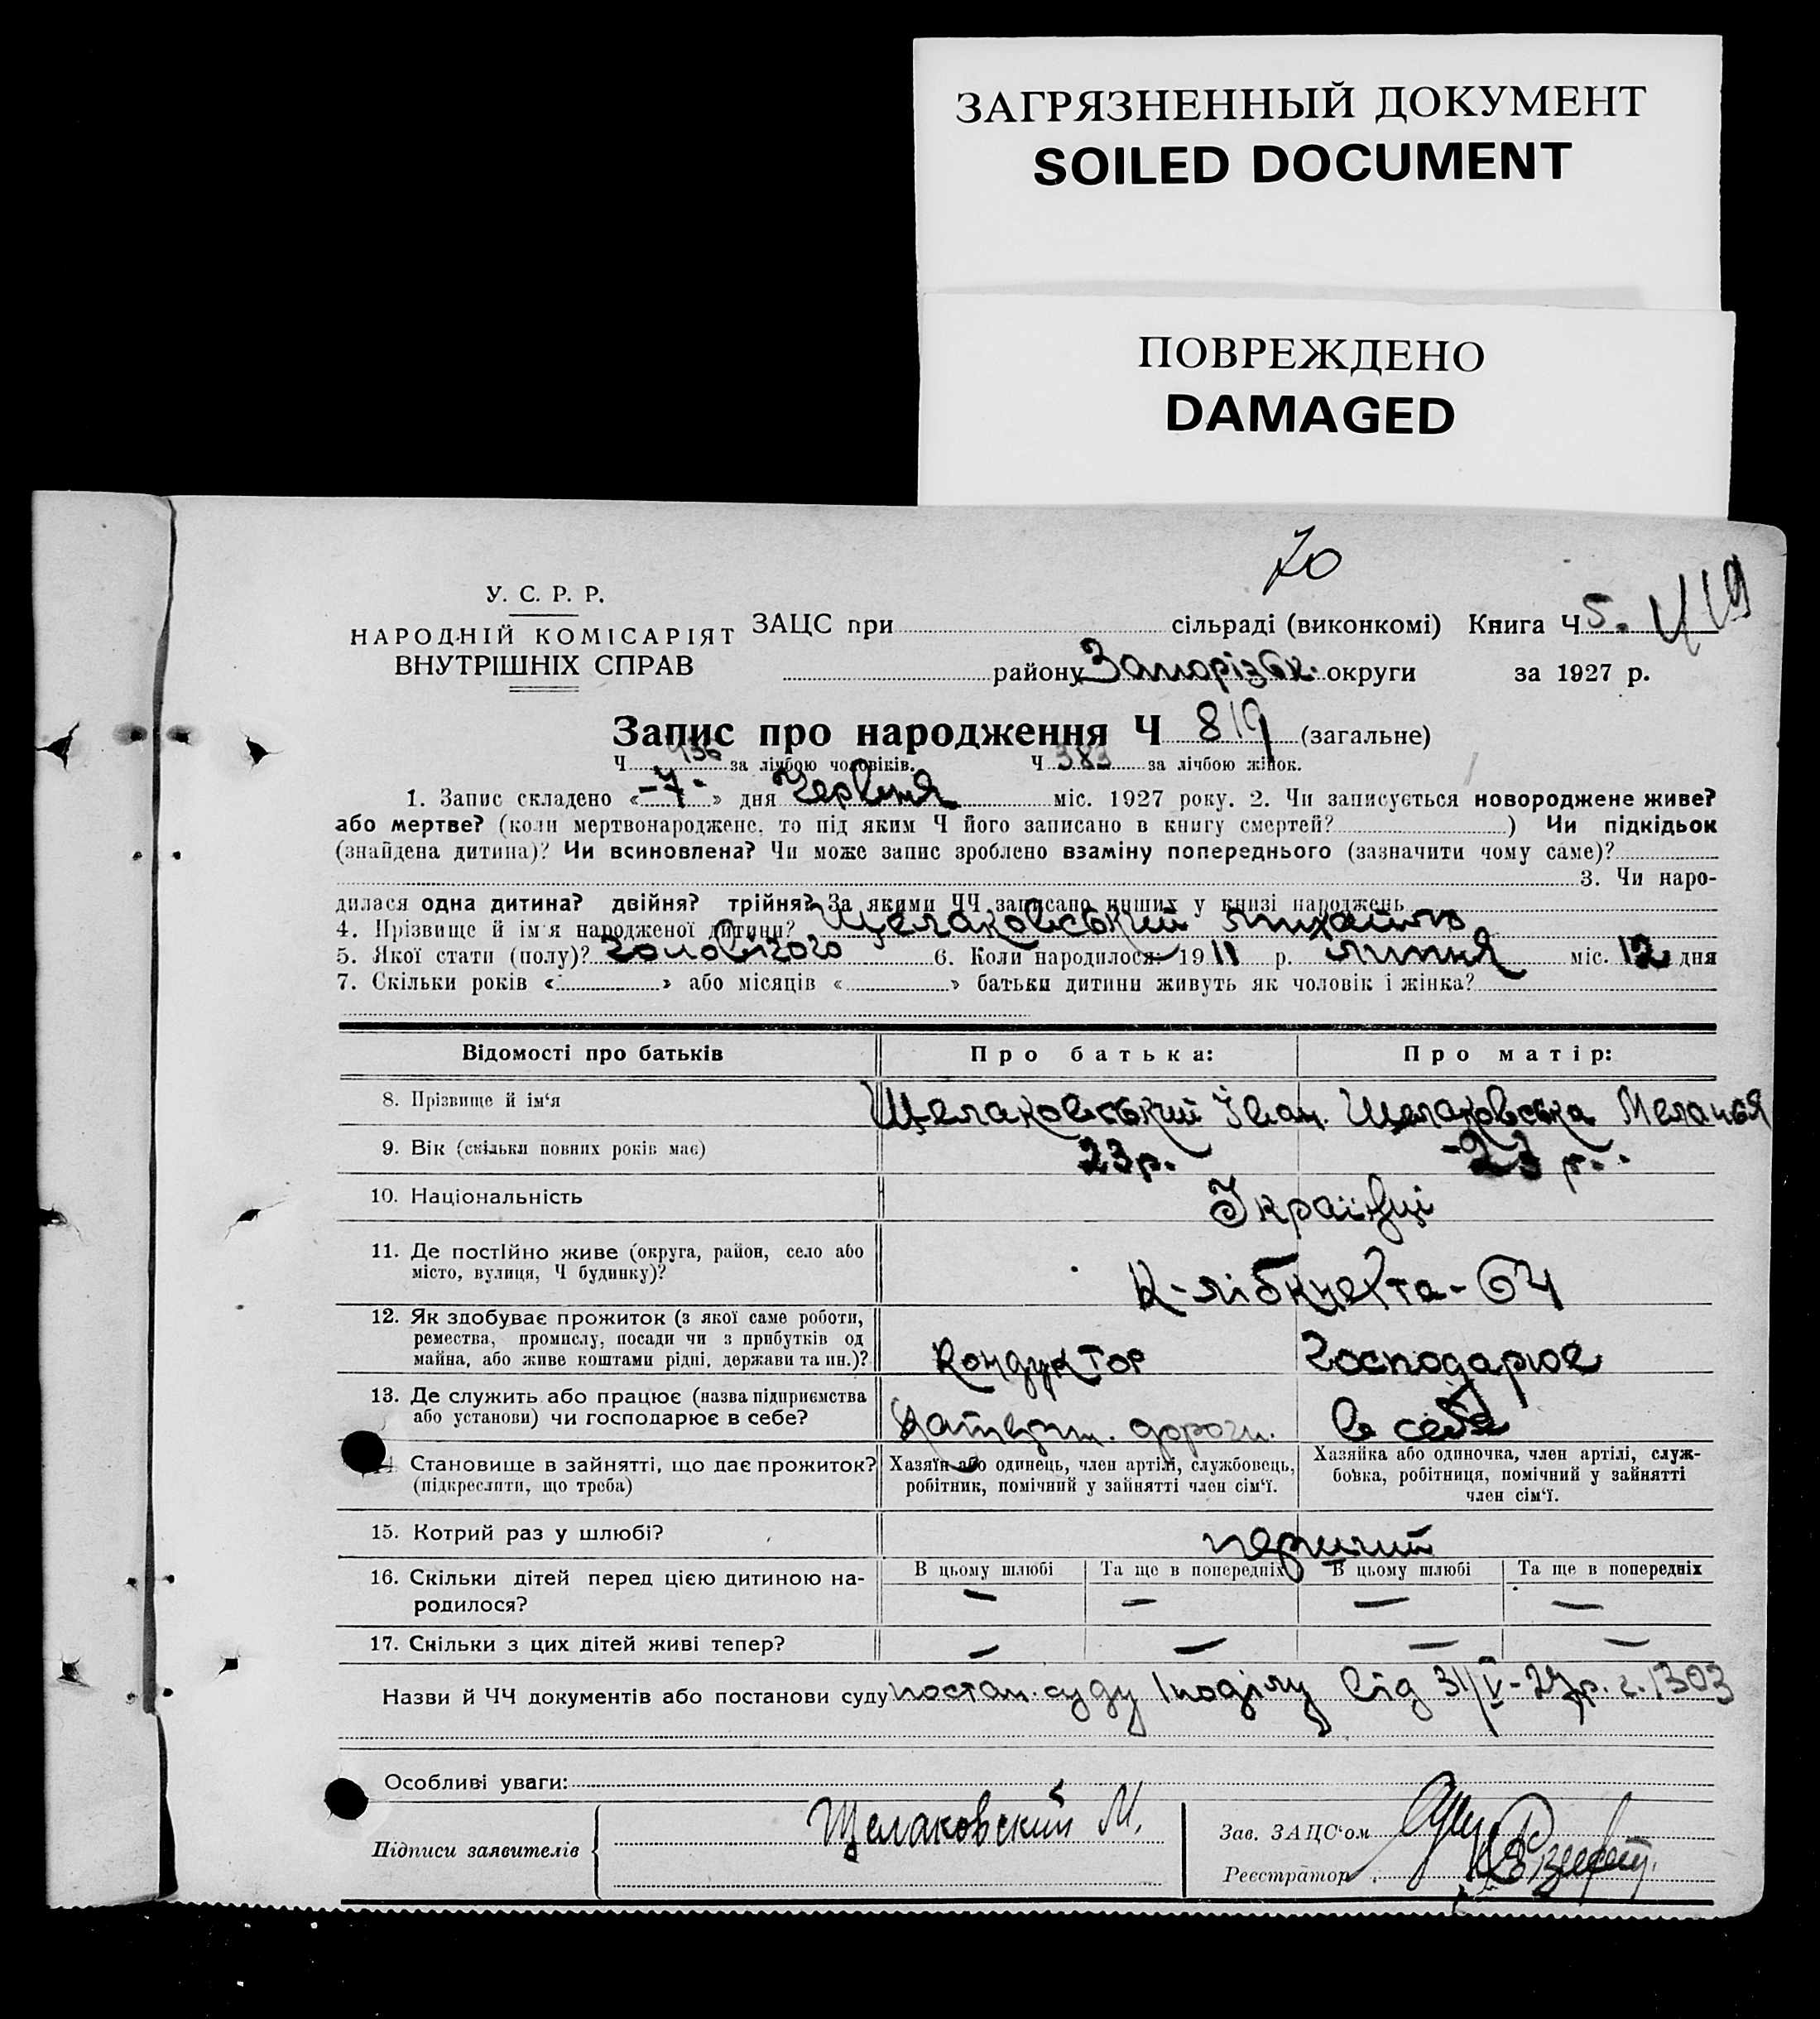 ЗАГРЯЗНЕННЫЙ ДОКУМЕНТ
SOILED DOCUMENT
ПОВРЕЖДЕНО
DAMAGED
70
У. С. Р. Р.
НАРОДНІЙ КОМІСАРІЯТ
ВНУТРІШНІХ СПРАВ
ЗАЦС при сільраді (виконкомі) Книга Ч 5.
району Запорізьк. округи за 1927 р.
Запис про народження Ч 819 (загальне)
Ч 436 за лічбою чоловіків. Ч 383 за лічбою жінок.
1. Запис складено «-7-» дня Червня міс. 1927 року. 2. Чи записується новороджене живе?
або мертве? (коли мертвонароджене, то під яким Ч його записано в книгу смертей? ) Чи підкідьок
(знайдена дитина)? Чи всиновлена? Чи може запис зроблено взаміну попереднього (зазначити чому саме)?
3. Чи наро-
дилася одна дитина? двійня? трійня? За якими ЧЧ записано инших у книзі народжень
4. Прізвище й ім'я народженої дитини? Щелаковський Михайло
5. Якої стати (полу)? чоловічого 6. Коли народилося: 1911 р. липня міс. 12 дня
7. Скільки років « » або місяців « » батьки дитини живуть як чоловік і жінка?
Відомості про батьків Про батька: Про матір:
8. Прізвище й ім'я Щелаковський Іван. Щелаковська Меланья
9. Вік (скільки повних років має) 23 р. -23 р.
10. Національність Українці
11. Де постійно живе (округа, район, село або
місто, вулиця, Ч будинку)? К-лібкнехта-64
12. Як здобуває прожиток (з якої саме роботи,
ремества, промислу, посади чи з прибутків од
майна, або живе коштами рідні, держави та ин.)? Кондуктор Господарює
13. Де служить або працює (назва підприємства
або установи) чи господарює в себе? дороги. в себе
14. Становище в зайнятті, що дає прожиток?
(підкреслити, що треба)
Хазяїн або одинець, член артілі, службовець,
робітник, помічний у зайнятті член сім'ї.
Хазяйка або одиночка, член артілі, служ-
бовка, робітниця, помічний у зайнятті
член сім'ї.
15. Котрий раз у шлюбі? перший
16. Скільки дітей перед цією дитиною на-
родилося?
В цьому шлюбі Та ще в попередніх В цьому шлюбі Та ще в попередніх
— — — —
17. Скільки з цих дітей живі тепер? — — — —
Назви й ЧЧ документів або постанови суду постан. суду від 31/V-27р. 1303
Особливі уваги:
Підписи заявителів Щелаковский М.
Зав. ЗАЦС'ом
Реєстратор